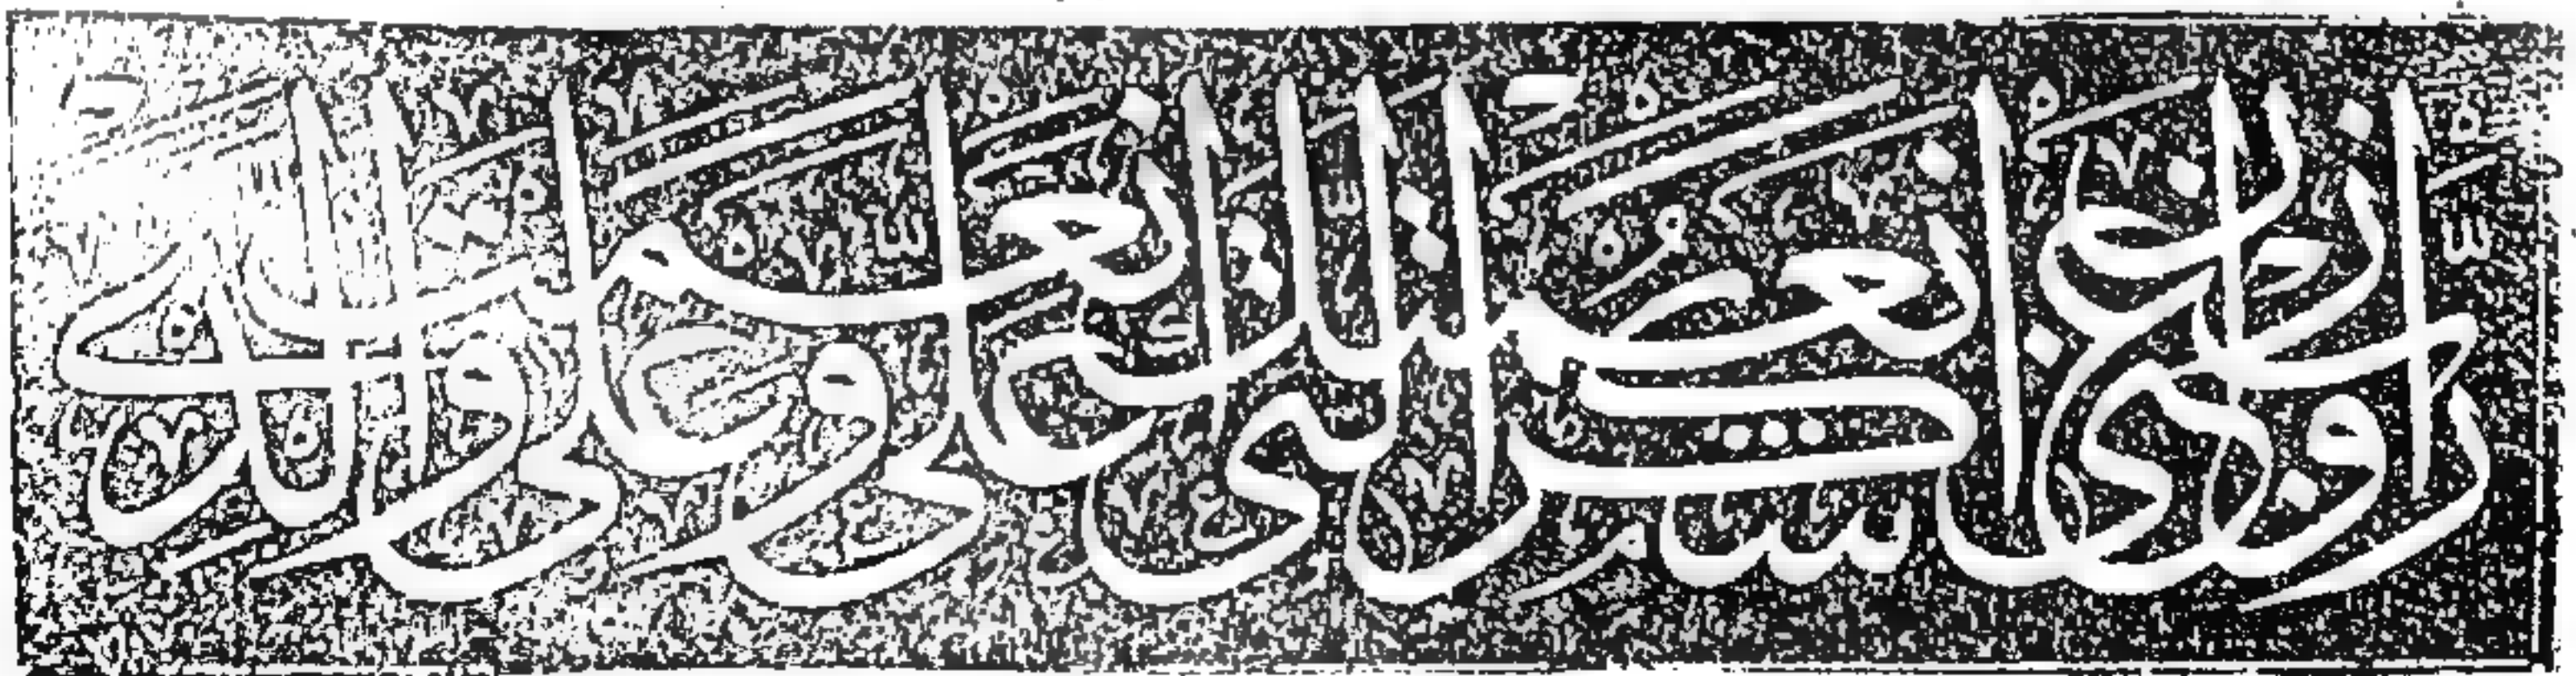 رب اوزعنى ان اشكر نعمتك التى انعمت على وعلى والدى